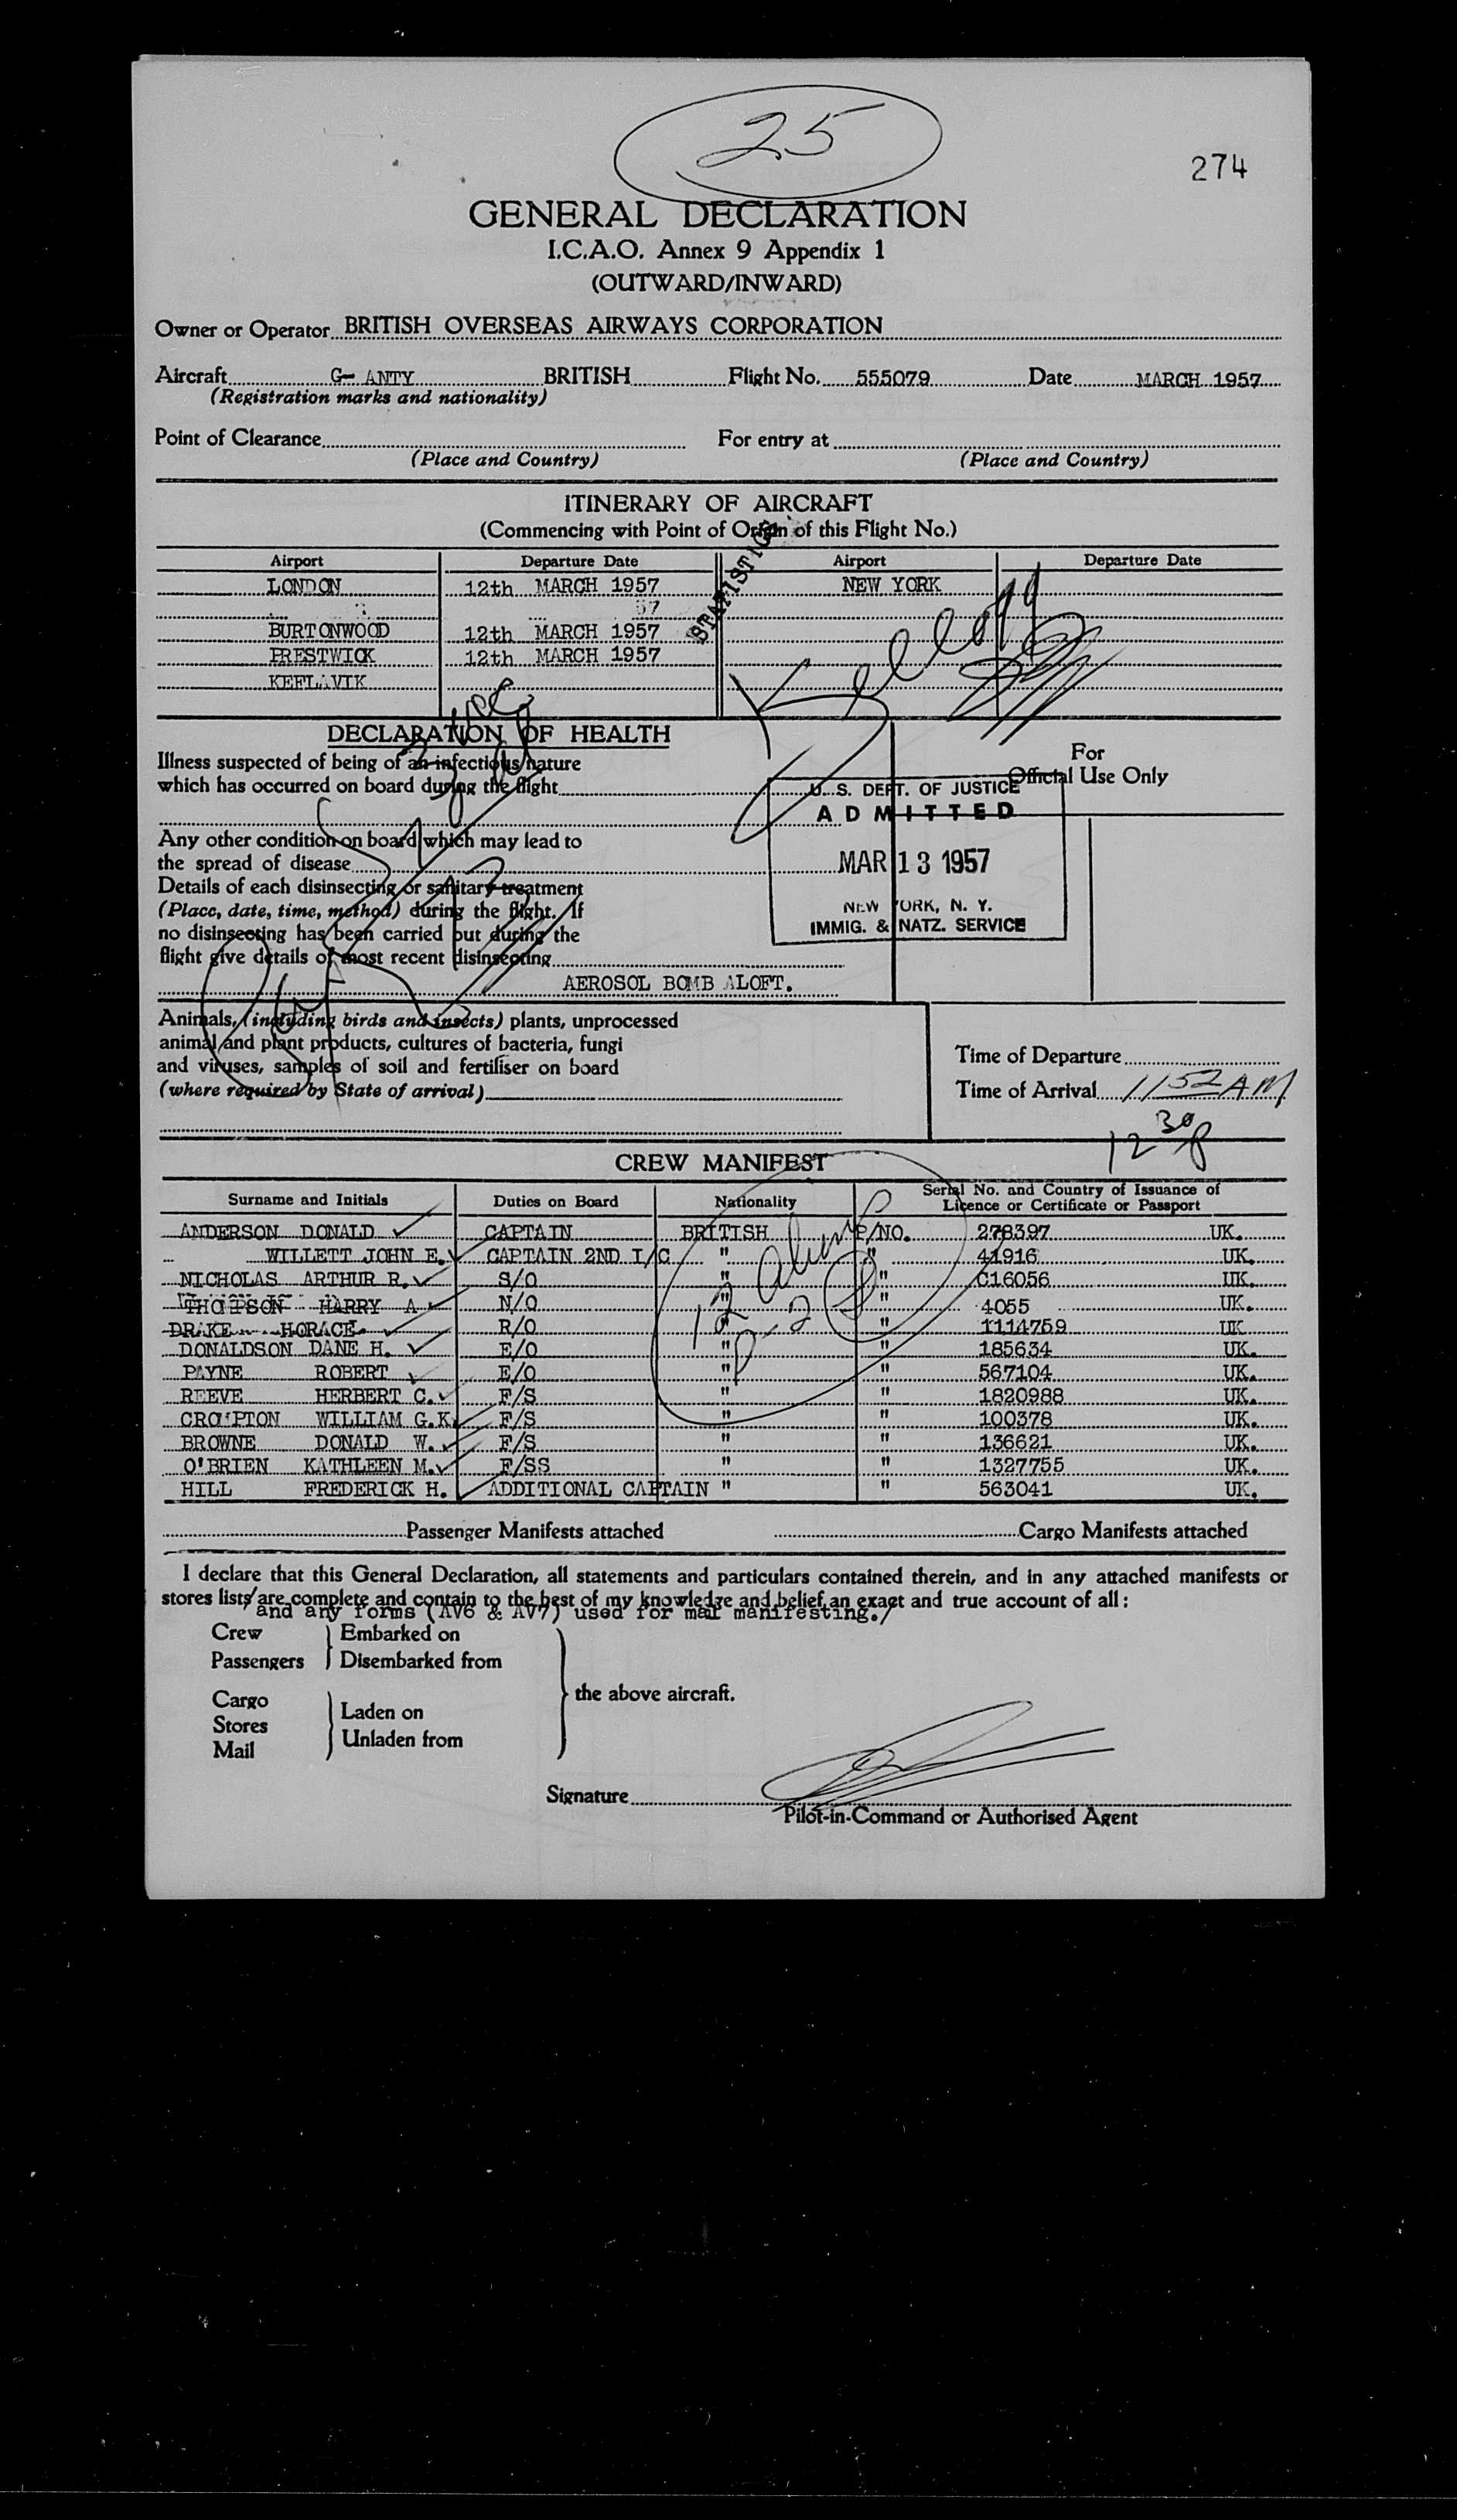 25
274
GENERAL DECLARATION
I.C.A.O. Annex 9 Appendix 1
(OUTWARD/INWARD)
Owner or Operator BRITISH OVERSEAS AIRWAYS CORPORATION
Aircraft G- ANTY BRITISH Flight No. 555079 Date MARCH 1957
(Registration marks and nationality)
Point of Clearance For entry at
(Place and Country) (Place and Country)
ITINERARY OF AIRCRAFT
(Commencing with Point of Origin of this Flight No.)
STATISTICS
Airport Departure Date Airport Departure Date
LONDON 12th MARCH 1957 NEW YORK
57
BURTONWOOD 12th MARCH 1957
PRESTWICK 12th MARCH 1957
KEFLAVIK
Kellogg
DECLARATION OF HEALTH
Illness suspected of being of an infectious nature
which has occurred on board during the flight
For
Official Use Only
U. S. DEPT. OF JUSTICE
ADMITTED
MAR 13 1957
NEW YORK, N. Y.
IMMIG. & NATZ. SERVICE
Any other condition on board which may lead to
the spread of disease
Details of each disinsecting or sanitary treatment
(Place, date, time, method) during the flight. If
no disinsecting has been carried out during the
flight give details of most recent disinsecting
AEROSOL BOMB ALOFT.
Animals, (including birds and insects) plants, unprocessed
animal and plant products, cultures of bacteria, fungi
and viruses, samples of soil and fertiliser on board
(where required by State of arrival)
Time of Departure
Time of Arrival 1152 AM
12 30 P
CREW MANIFEST
Surname and Initials Duties on Board Nationality Serial No. and Country of Issuance of
Licence or Certificate or Passport
ANDERSON DONALD CAPTAIN BRITISH P/NO. 278397 UK.
WILLETT JOHN E. CAPTAIN 2ND I/C " " 41916 UK.
NICHOLAS ARTHUR R. S/O " " C16056 UK.
THOMPSON HARRY A N/O " " 4055 UK.
DRAKE HORACE R/O " " 1114759 UK
DONALDSON DANE H. E/O " " 185634 UK.
PAYNE ROBERT E/O " " 567104 UK.
REEVE HERBERT C. F/S " " 1820988 UK.
CROMPTON WILLIAM G.K. F/S " " 100378 UK.
BROWNE DONALD W. F/S " " 136621 UK.
O'BRIEN KATHLEEN M. F/SS " " 1327755 UK.
HILL FREDERICK H. ADDITIONAL CAPTAIN " " 563041 UK.
Passenger Manifests attached Cargo Manifests attached
I declare that this General Declaration, all statements and particulars contained therein, and in any attached manifests or
stores lists/are complete and contain to the best of my knowledge and belief an exact and true account of all:
and any forms (AV6 & AV7) used for mail manifesting./
Crew Embarked on
Passengers Disembarked from
Cargo
Stores Laden on
Mail Unladen from
the above aircraft.
Signature
Pilot-in-Command or Authorised Agent